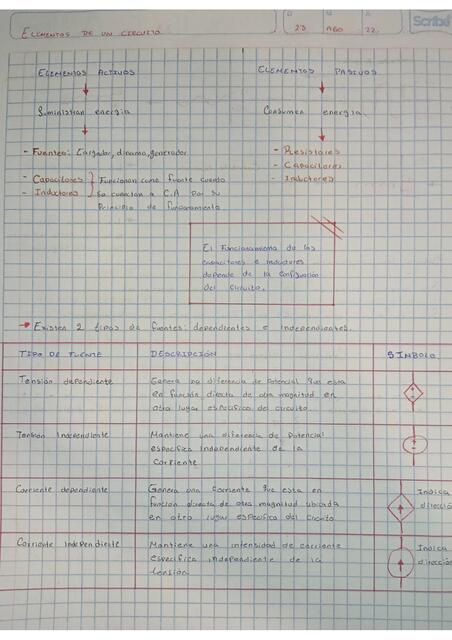 Elementos de un circuito
D M A
23 AGO 22
Scribe
Elementos Activos
Elementos Pasivos
Suministran energia
Consumen energia
- Fuentes: Cargador, dinamo, generador
- Resistores
- Capacitores
- Inductores
- Capacitores
- Inductores
Funcionan como fuente cuando
Se conectan a C.A por su
Principio de funcionamiento
El funcionamiento de los
capacitores e inductores
depende de la configuración
del circuito.
Existen 2 tipos de fuentes: dependientes e independientes.
TIPO DE FUENTE DESCRIPCIÓN SÍMBOLO
Tensión dependiente
Genera una diferencia de Potencial que esta
en función directa de otra magnitud en
otro lugar especifico del circuito.
Tension Independiente
Mantiene una diferencia de Potencial
especifica independiente de la
corriente
Corriente dependiente
Genera una corriente que esta en
función directa de otra magnitud ubicada
en otro lugar especifico del circuito
Indica
dirección
Corriente Independiente
Mantiene una intensidad de corriente
especifica independiente de la
tensión
Indica
dirección